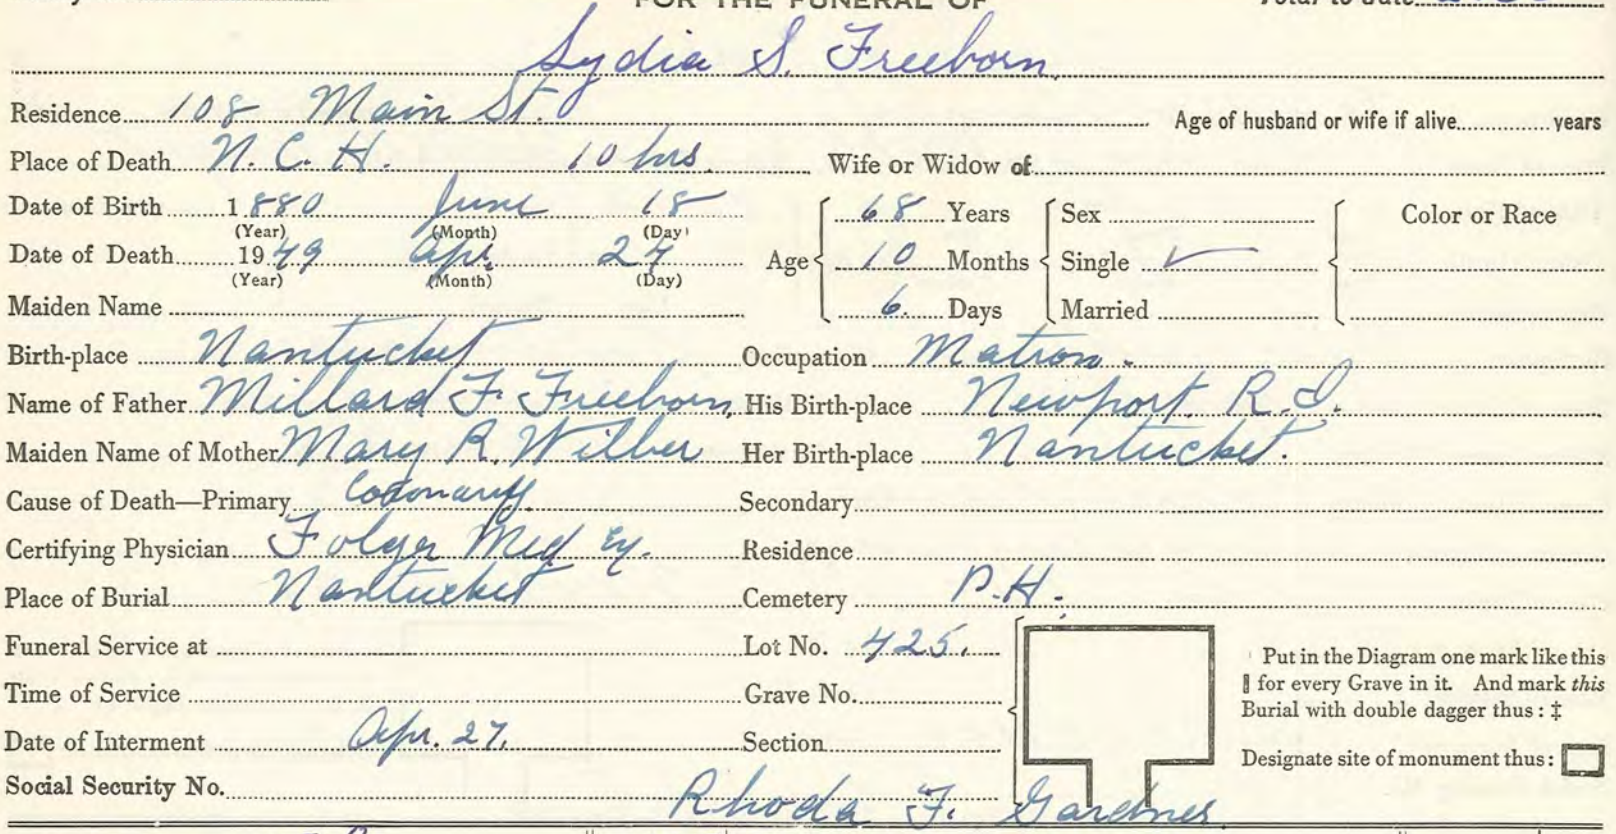 FOR THE FUNERAL OF Total to date
Lydia S. Freeborn
Residence 108 Main St. Age of husband or wife if alive years
Place of Death N. C. H. 10 hrs. Wife or Widow of
Date of Birth 1880 June 18 68 Years Sex Color or Race
(Year) (Month) (Day)
Date of Death 1949 Apr. 24 Age 10 Months Single ✓
(Year) (Month) (Day)
Maiden Name 6. Days Married
Birth-place Nantucket Occupation Matron.
Name of Father Millard F. Freeborn, His Birth-place Newport. R.I.
Maiden Name of Mother Mary R. Wilber Her Birth-place Nantucket.
Cause of Death—Primary Coronary. Secondary
Certifying Physician Folger Med Ex. Residence
Place of Burial Nantucket Cemetery P.H.
Funeral Service at Lot No. 425.
Time of Service Grave No.
Date of Interment Apr. 27. Section
Social Security No.
Put in the Diagram one mark like this
for every Grave in it. And mark this
Burial with double dagger thus: ‡
Designate site of monument thus:
Rhoda F. Gardner